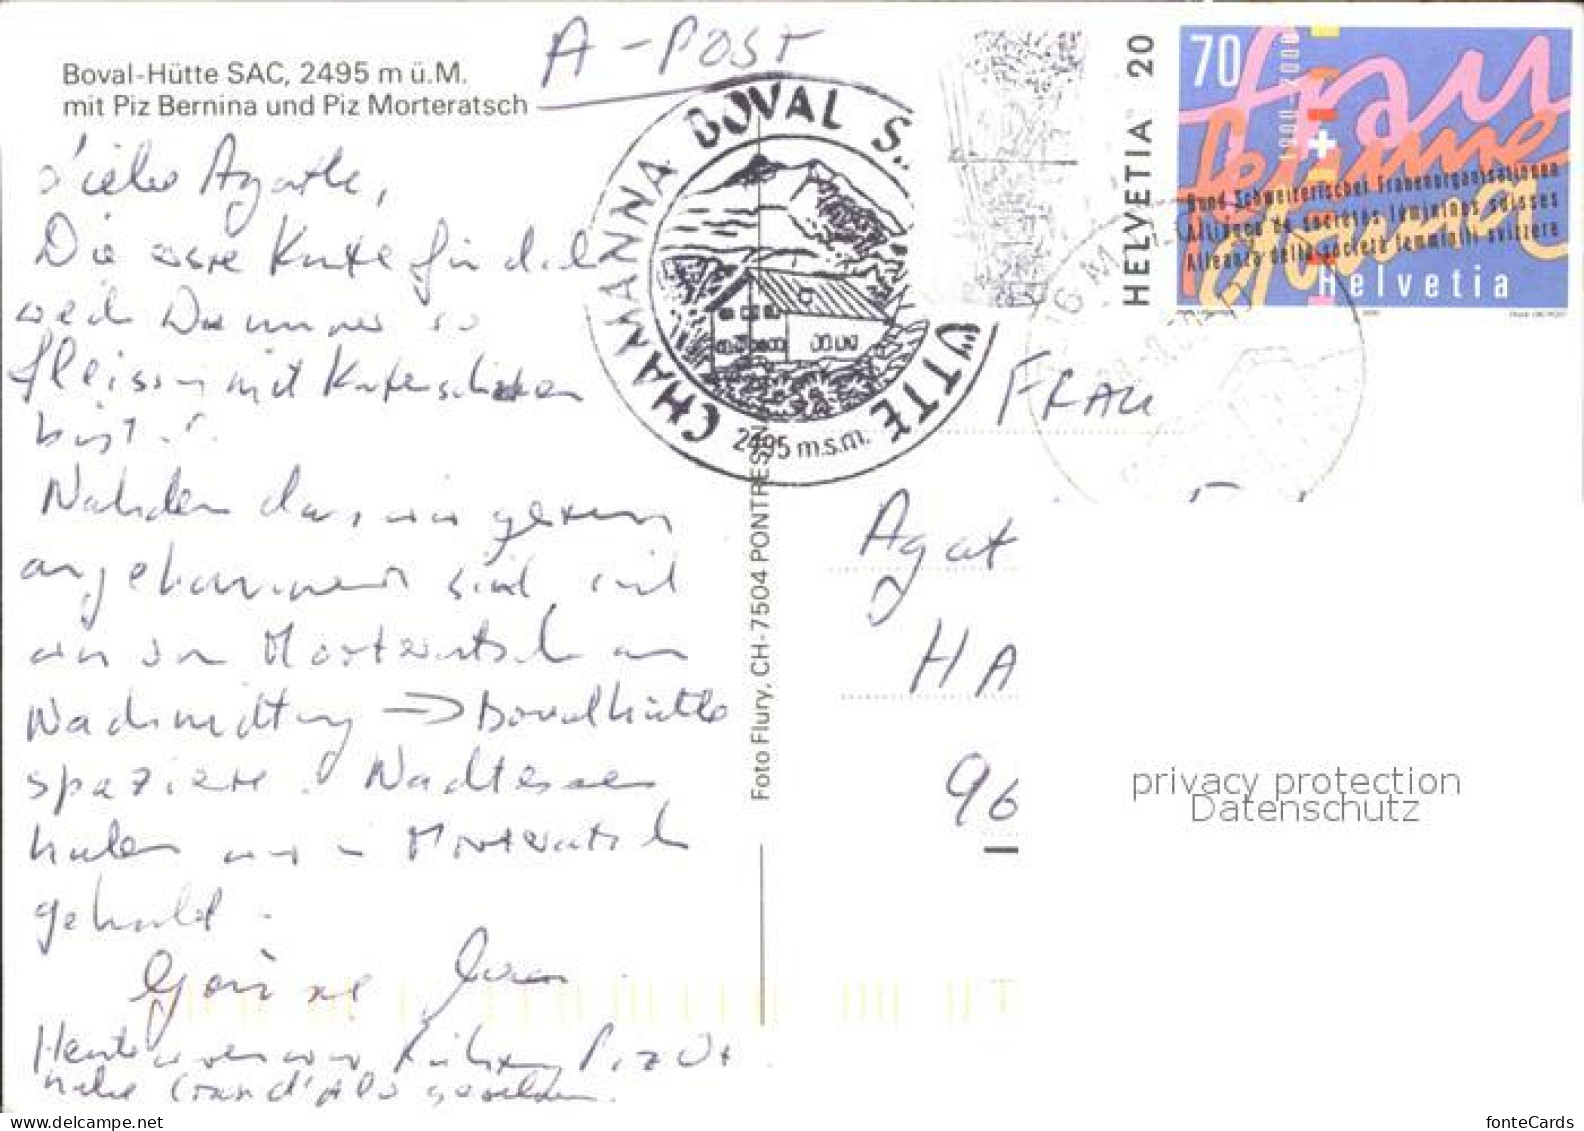 Boval-Hütte SAC, 2495 m ü.M.
mit Piz Bernina und Piz Morteratsch
A-POST
Liebe Agathe,
Die erste Karte für dich
weil Du immer so
fleissig mit Kartenschicken
bist.
Nachdem dass wir gestern
angekommen sind und
wir von Morteratsch am
Nachmittag → Bovalhütte
spaziert. Nachtessen
haben wir in Morteratsch
gehabt.
Grüsse
Heute waren wir Piz
nahe Grand'Alp
CHAMANNA BOVAL S.
ÜTTE
2495 m.s.m.
Foto Flury, CH-7504 PONTRESIN
HELVETIA 20
70
1900 2000
frau
femme
donna
Bund Schweizerischer Frauenorganisationen
Alliance de sociétés féminines suisses
Alleanza delle società femminili svizzere
Helvetia
FRAU
Agat
HA
96
privacy protection
Datenschutz
delcampe.net
fonteCards